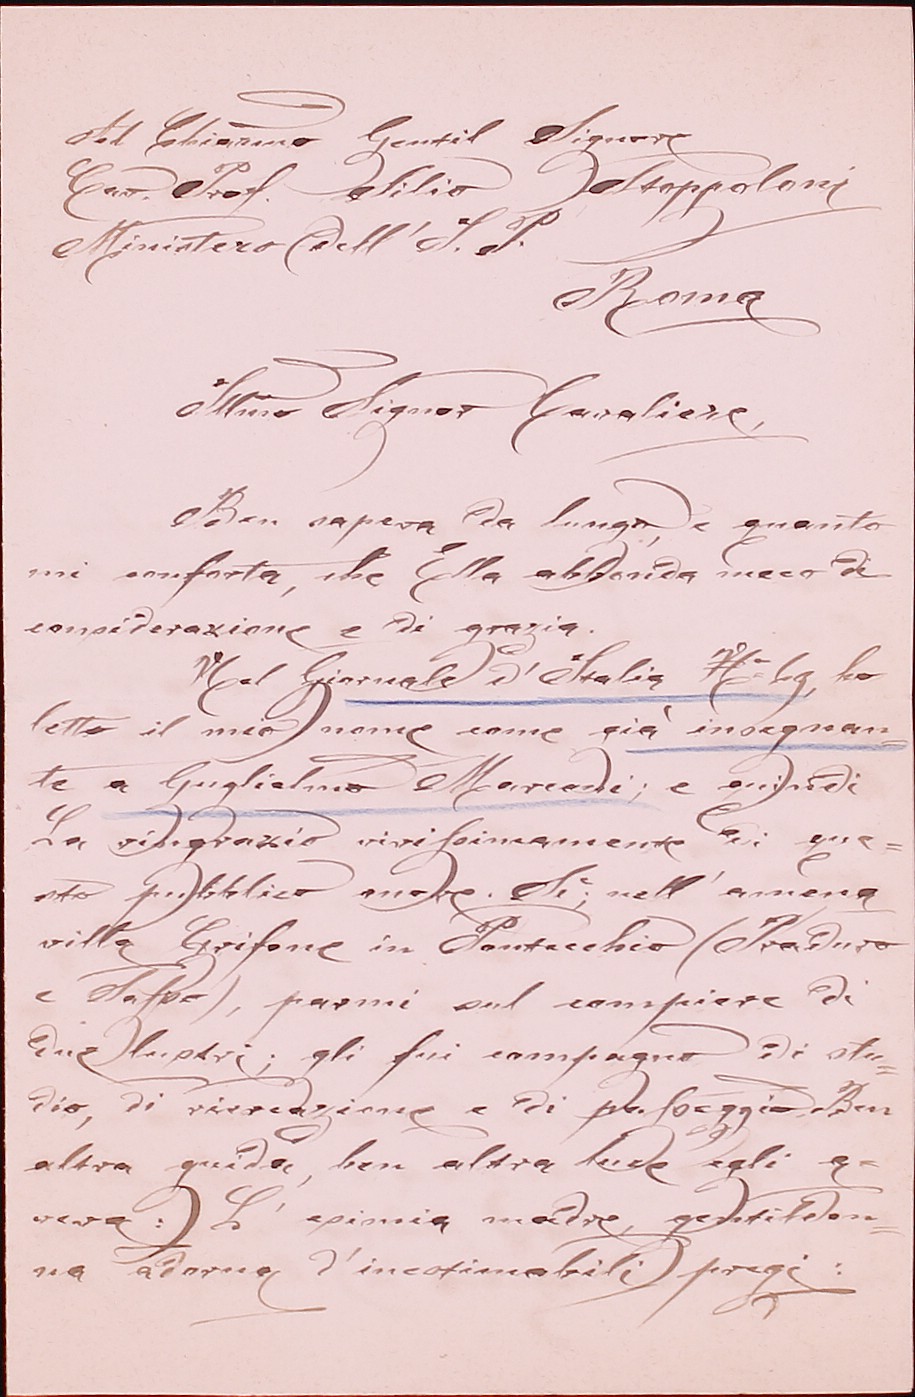 Al Chiarmo Gentil Signore
Cav. Prof. Attilio Stoppoloni
Ministero dell' I. P.
Roma
Illmo Signor Cavaliere,
Ben sapeva da lungo, e quanto
mi conforta, che Ella abbonda meco di
considerazione e di grazia.
Nel Giornale d'Italia No hg, ho
letto il mio nome come già insegnan=
te a Guglielmo Marconi; e quindi
La ringrazio vivissimamente di que=
sto pubblico onore. Sì; nell' amena
villa Grifone in Pontecchio (Praduro
e Sasso), parmi sul compiere di
due lustri; gli fui compagno di stu=
dio, di ricreazione e di passeggio. Ben
altra guida, ben altra luce egli a=
veva:) L' esimia madre, gentildon=
na adorna d'inestimabili pregi: